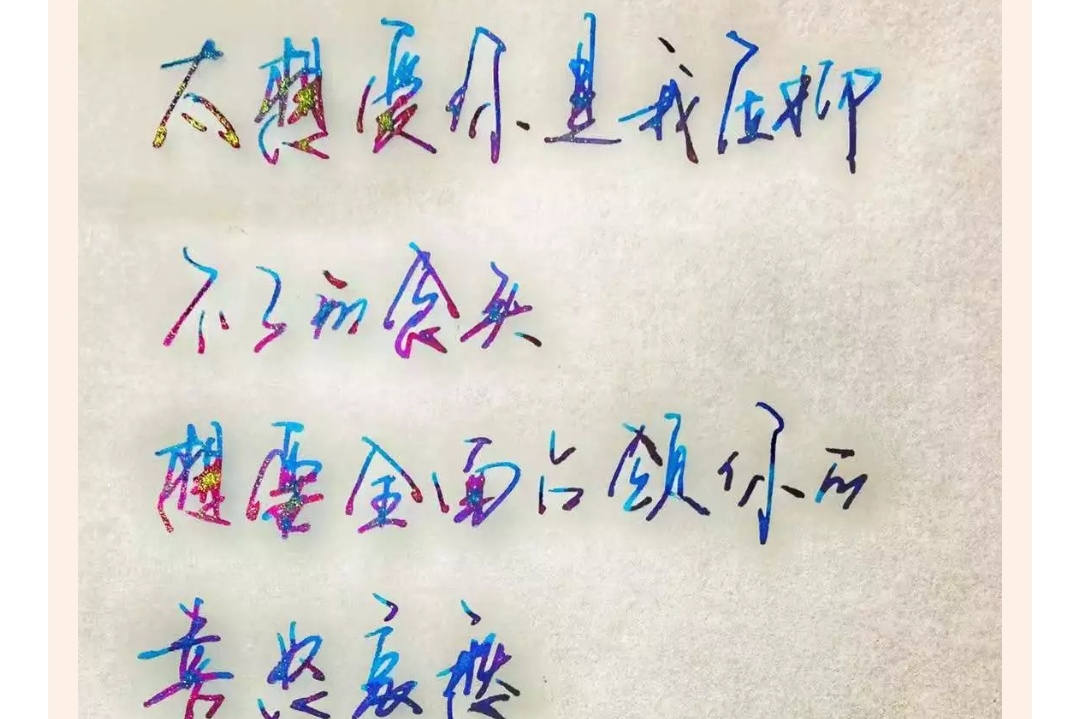 太想爱你是我压抑
不了的念头
想要全面占领你的
喜怒哀愁